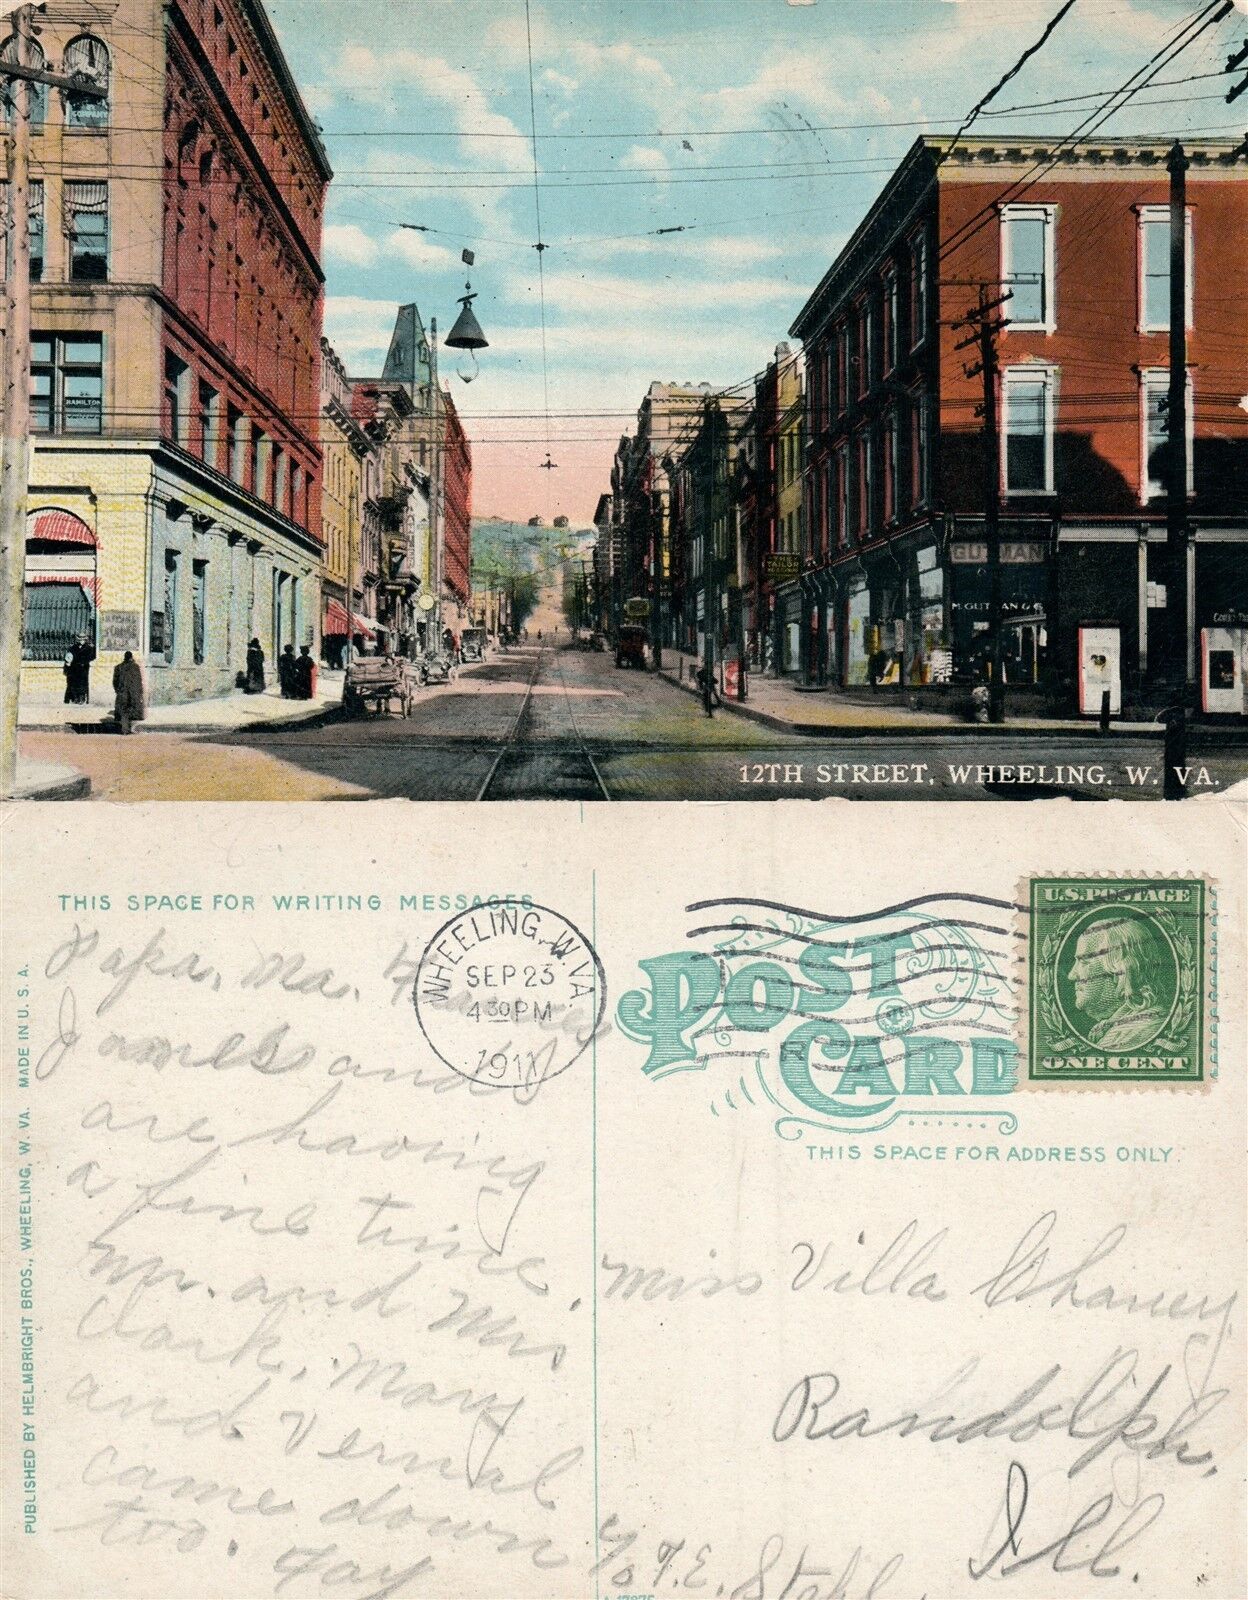 HAMILTON
TAILOR
GUTMAN
M. GUTMAN & Co
12TH STREET, WHEELING, W. VA.
THIS SPACE FOR WRITING MESSAGES
WHEELING, W. VA.
SEP 23
4 30 PM
1911
POST
CARD
U.S. POSTAGE
ONE CENT
THIS SPACE FOR ADDRESS ONLY.
PUBLISHED BY HELMBRIGHT BROS., WHEELING, W. VA. MADE IN U. S. A.
Papa, Ma, Frances
James and I
are having
a fine time.
Mr. and Mrs
Clark, Mary
and Vernal
came down
too.
Miss Villa Chaney
Randolph,
Ill.
c/o T. E. Stahl